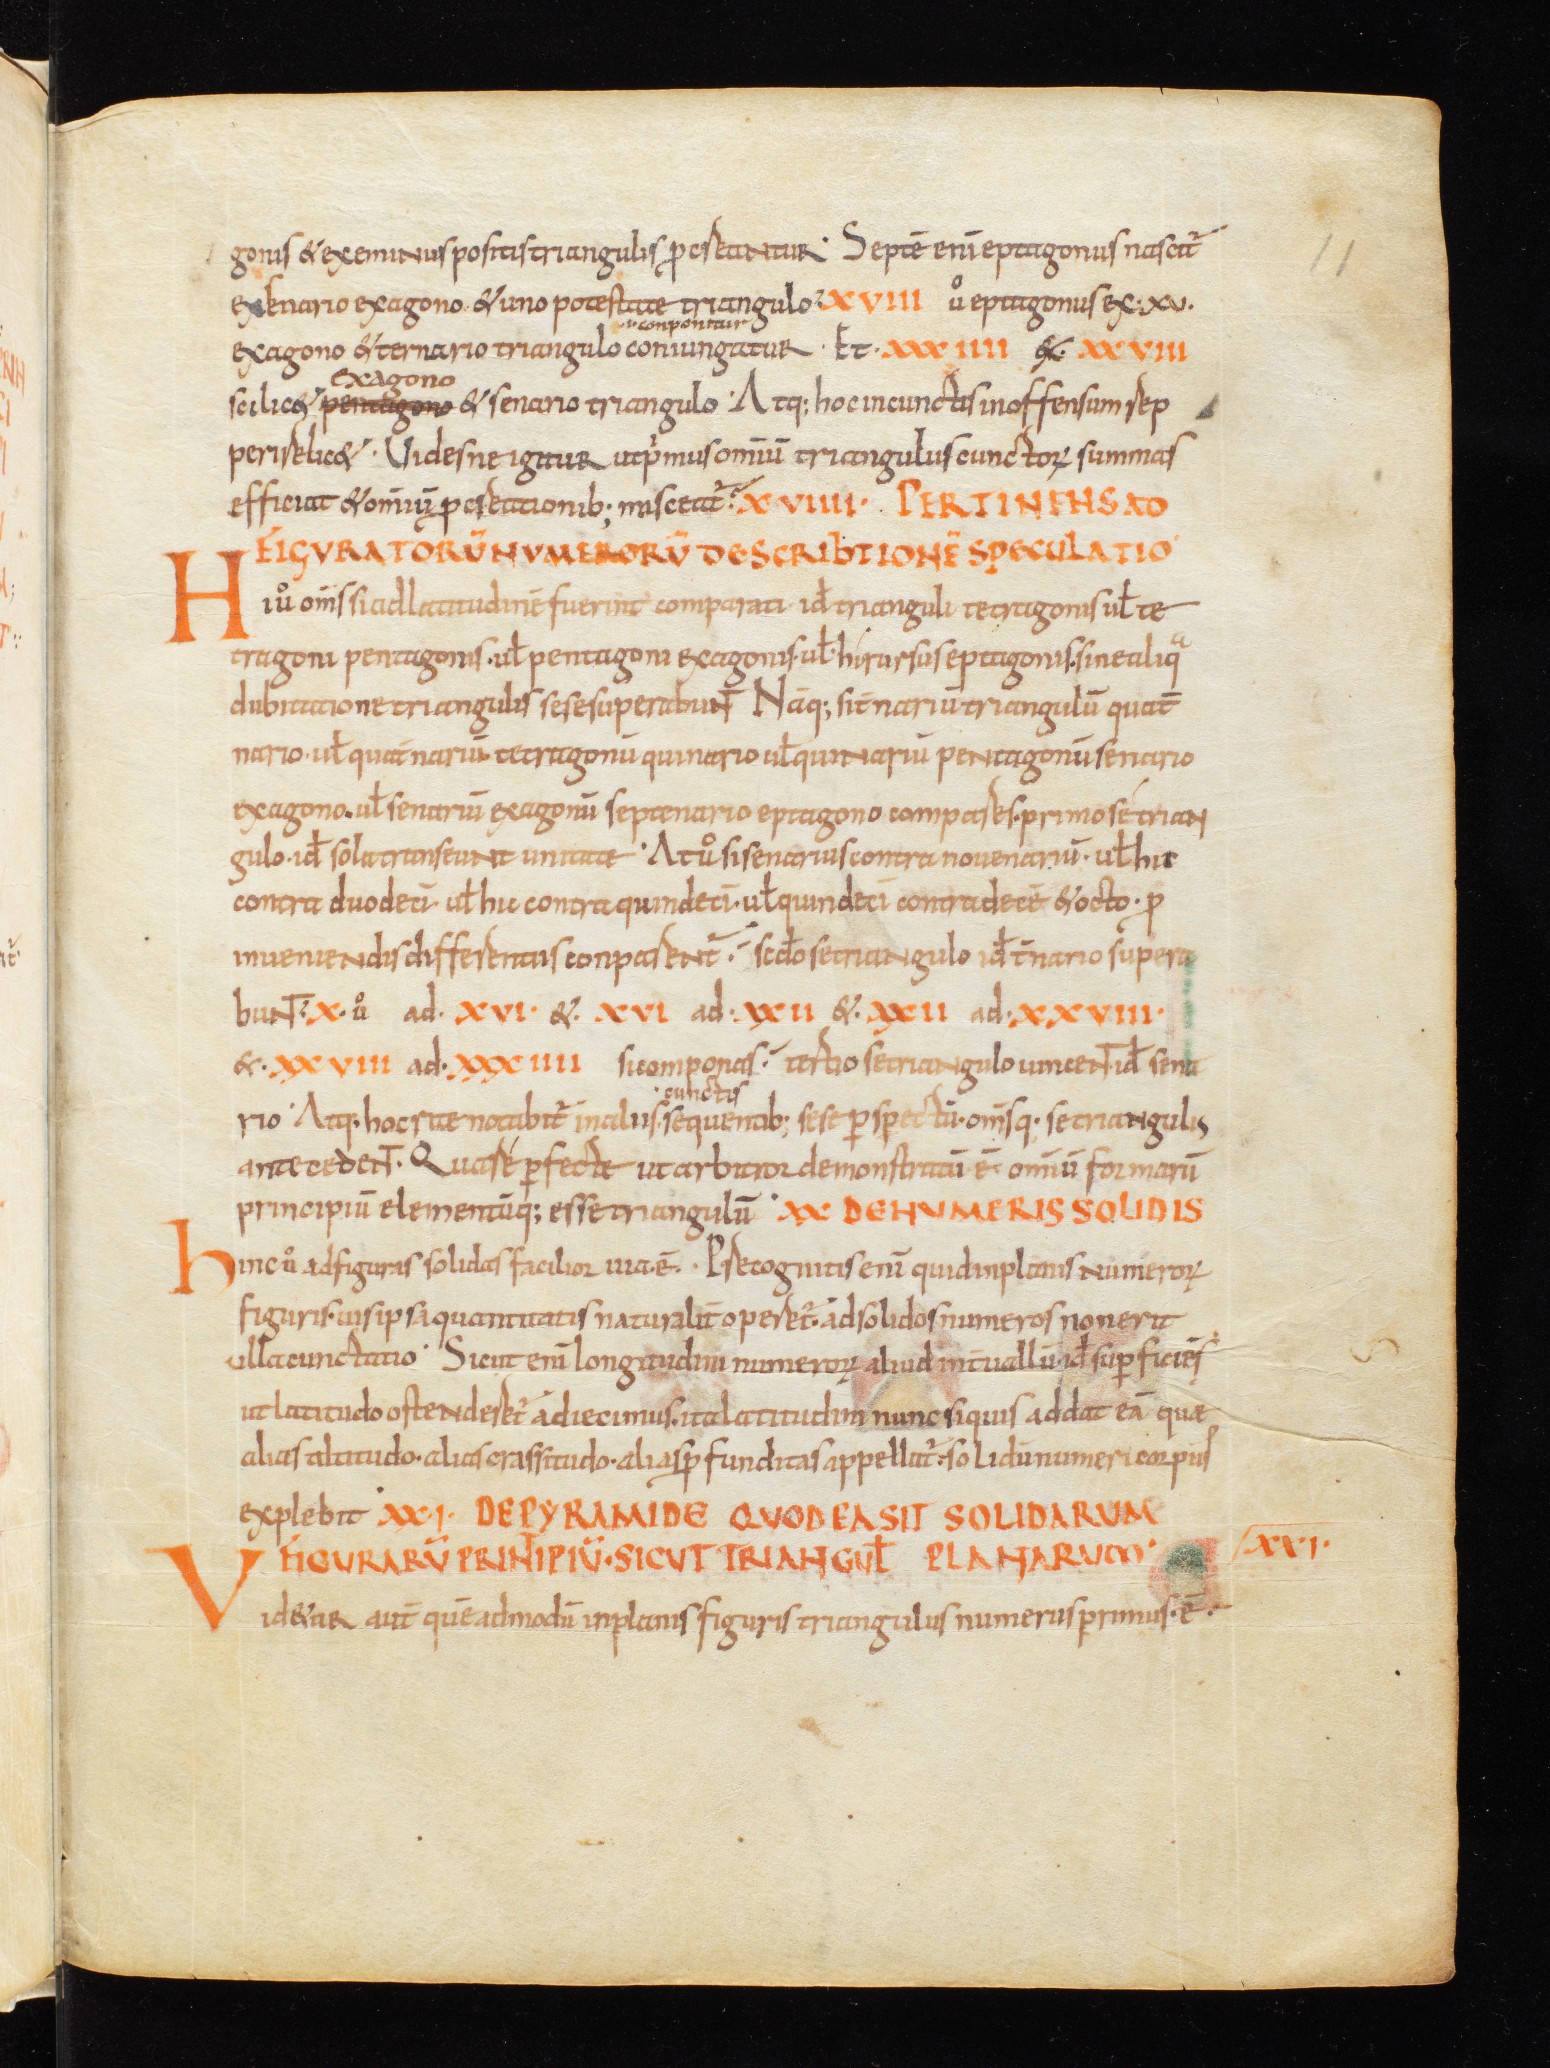 11
gonis & exeminus positis triangulis ꝓcreantur. Septē enī eptagonus nascit̄
ex senario exagono & uno potestate triangulo. XVIII u̇ eptagonus ex. xv.
conponitur
exagono & ternario triangulo coniungatur. Et. XXXIIII ex. XXVIII
exagono
scilic& pentagono & senario triangulo. Atq; hoc in cunctis inoffensum sep
perire lic&. Uidesne igitur ut pⁱmus omīū triangulus cunctoꝝ summas
efficiat & omīū ꝓcreationib; misceat̄. XVIIII. PERTINENS AD
FIGURATORŪ NUMERORŪ DESCRIBTIONĒ SPECULATIO
Hiu̇ om̄s si ad latitudinē fuerint comparati id ē trianguli tetragonis ul̄ te
tragoni pentagonis. ul̄ pentagoni exagonis. ul̄ hi rursus eptagonis. sine aliqᵃ
dubitatione triangulis sese superabunt̄ Nāq; si t̄nariū triangulū quat̄
nario. ul̄ quat̄nariū tetragonū quinario ul̄ quinariū pentagonū senario
exagono. ul̄ senariū exagonū septenario eptagono compares. primo se trian
gulo. id ē sola transeunt unitate. At u̇ si senarius contra nouenariū. ul̄ hic
contra duodecī ul̄ hic contra quindecī. ul̄ quindecī contra decē & octo. ꝓ
inueniendis differentiis conparent̄. scd̄o se triangulo id ē t̄nario supera
bunt̄. X. u̇ ad. XVI. &. XVI ad. XXII &. XXII ad. XXVIII.
&. XXVIII ad. XXXIIII si componas. tertio se triangulo uincent̄ id ē sena
cunctis
rio. Atq. hoc rite notabit̄ in aliis. sequentib; sese ꝑspectū. om̄sq. se triangulis
antecedent̄. Qua re ꝑfecte ut arbitror demonstratū ē. omīū formarū
principiū elementūq; esse triangulū. XX DE NUMERIS SOLIDIS
hinc u̇ ad figuras solidas facilior uia ē. Precognitis enī quid in planis numeroꝝ
figuris. uis ipsa quantitatis naturalit̄ operet̄. ad solidos numeros non erit
ulla cunctatio. Sicut enī longitudini numeroꝝ aliud int̄uallū. id ē suꝑficiē
ut latitudo ostenderet̄ adiecimus. ita latitudini nunc si quis addat eā quae
alias altitudo. alias crassitudo. alias ꝓfunditas appellat̄. solidū numeri corpus
explebit. XXI. DE PYRAMIDE QUOD EA SIT SOLIDARUM
FIGURARŪ PRINCIPIŪ. SICUT TRIANGUL̄ PLANARUM.
XXI.
Uidetur aut̄ quēadmodū in planis figuris triangulus numerus primus. ē.